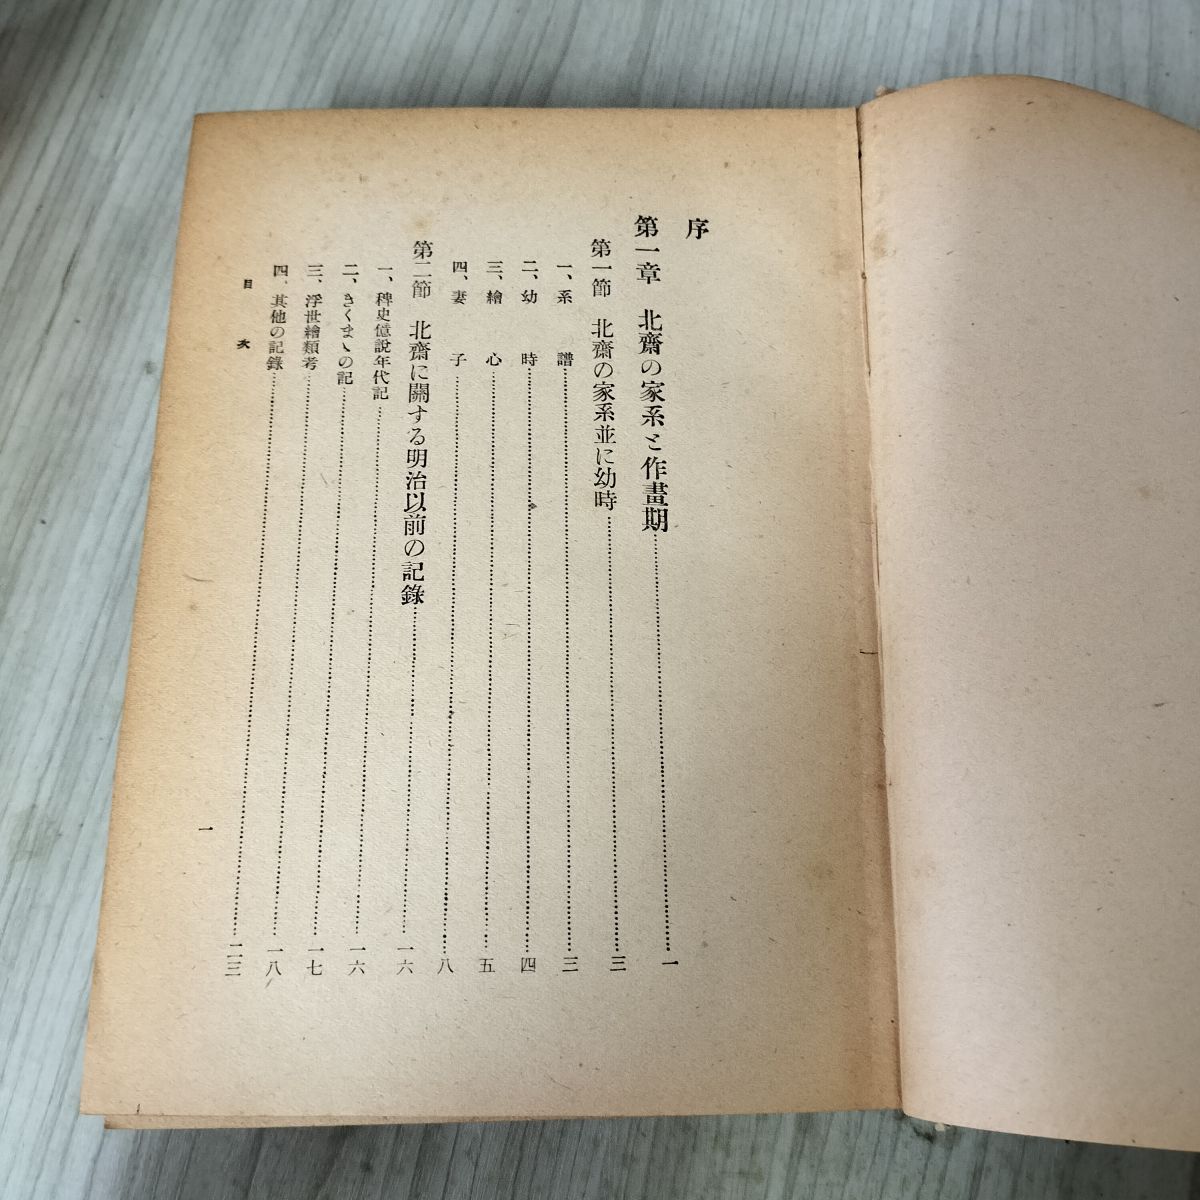 序
第一章　北齋の家系と作畫期……一
第一節　北齋の家系並に幼時……三
一、系　譜……三
二、幼　時……四
三、繪　心……五
四、妻　子……八
第二節　北齋に關する明治以前の記錄……一六
一、稗史億說年代記……一六
二、きくまゝの記……一七
三、浮世繪類考……一八
四、其他の記錄……二三
目　次
一